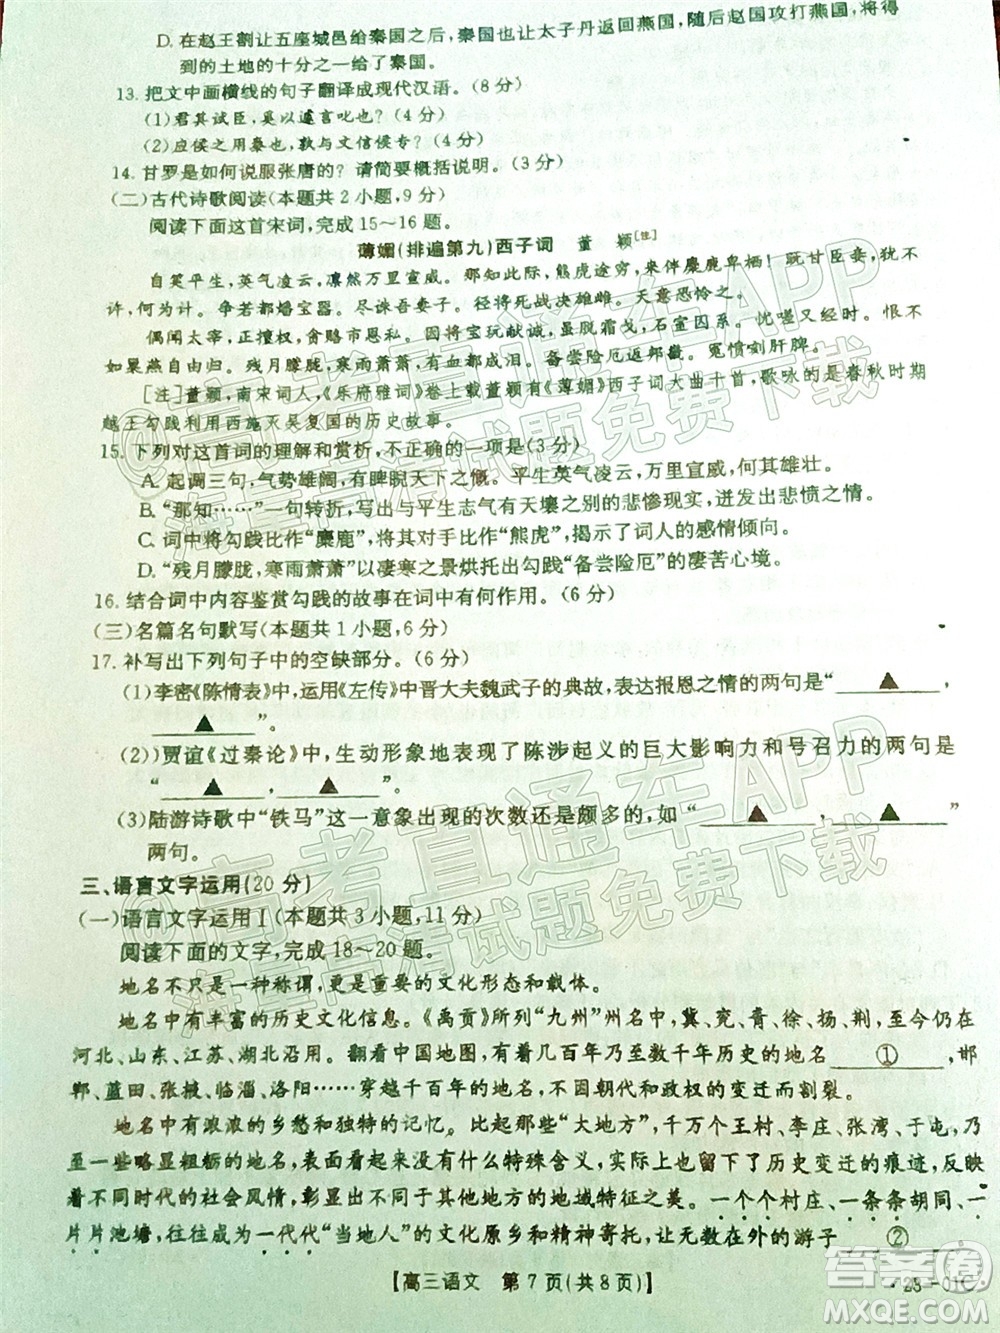 D. 在赵王割让五座城邑给秦国之后，秦国也让太子丹返回燕国，随后赵国攻打燕国，将得
到的土地的十分之一给了秦国。
13. 把文中画横线的句子翻译成现代汉语。(8分)
(1)君其试臣，奚以遽言叱也？(4分)
(2)应侯之用秦也，孰与文信侯专？(4分)
14. 甘罗是如何说服张唐的？请简要概括说明。(3分)
(二)古代诗歌阅读(本题共2小题，9分)
阅读下面这首宋词，完成15～16题。
薄媚(排遍第九)西子词 董 颖[注]
自笑平生，英气凌云，凛然万里宣威。那知此际，熊虎途穷，来伴麋鹿卑栖。既甘臣妾，犹不
许，何为计。争若都燔宝器。尽诛吾妻子。径将死战决雄雌。天意恐怜之。
偶闻太宰，正擅权，贪赂市恩私。因将宝玩献诚，虽脱霜戈，石室囚系。忧嗟又经时。恨不
如巢燕自由归。残月朦胧，寒雨萧萧，有血都成泪。备尝险厄返邦畿。冤愤刻肝脾。
[注]董颖，南宋词人，《乐府雅词》卷上载董颖有《薄媚》西子词大曲十首，歌咏的是春秋时期
越王勾践利用西施灭吴复国的历史故事。
15. 下列对这首词的理解和赏析，不正确的一项是(3分)
A. 起调三句，气势雄阔，有睥睨天下之慨。平生英气凌云，万里宣威，何其雄壮。
B. “那知……”一句转折，写出与平生志向有天壤之别的悲惨现实，抒发出悲愤之情。
C. 词中将勾践比作“麋鹿”，而将其对手比作“熊虎”，揭示了词人的感情倾向。
D. “残月朦胧，寒雨萧萧”以凄寒之景烘托出勾践“备尝险厄”的凄苦心境。
16. 结合词中内容鉴赏勾践的故事在词中有何作用。(6分)
(三)名篇名句默写(本题共1小题，6分)
17. 补写出下列句子中的空缺部分。(6分)
(1)李密《陈情表》中，运用《左传》中晋大夫魏武子的典故，表达报恩之情的两句是“▲，
▲”。
(2)贾谊《过秦论》中，生动形象地表现了陈涉起义的巨大影响力和号召力的两句是
“▲，▲”。
(3)陆游诗歌中“铁马”这一意象出现的次数还是颇多的，如“▲，▲”
两句。
三、语言文字运用(20分)
(一)语言文字运用Ⅰ(本题共3小题，11分)
阅读下面的文字，完成18～20题。
地名不只是一种称谓，更是重要的文化形态和载体。
地名中有丰富的历史文化信息。《禹贡》所列“九州”州名中，冀、兖、青、徐、扬、荆，今天仍在
河北、山东、江苏、湖北沿用。翻看中国地图，有着几百年乃至数千年历史的地名 ① ，邯
郸、蓝田、张掖、临淄、洛阳……穿越千百年的时光，不因朝代和政权的变动而割裂。
地名中有浓浓的乡愁和独特的记忆。比起那些“大地方”，千万个王村、李庄、张湾、于屯，乃
至一些略显粗粝的地名，表面看起来没有什么特殊含义，实际上也留下了历史变迁的痕迹，反映
着不同时代的社会风情，彰显出不同于其他地方的地域特征之美。一个个村庄、一条条胡同、一
片片池塘，往往成为一代代“当地人”的文化原乡和精神寄托，让无数在外的游子 ②
【高三语文 第7页(共8页)】
·23-01C·